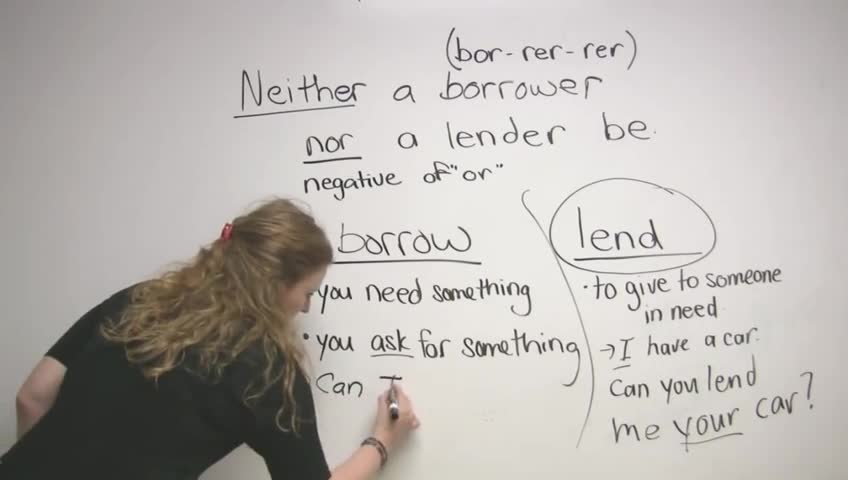 (bor-rer-rer)
Neither a borrower
nor a lender be.
negative of "or"
borrow
· you need something
· you ask for something
Can
lend
· to give to someone
in need
→ I have a car.
Can you lend
me your car?